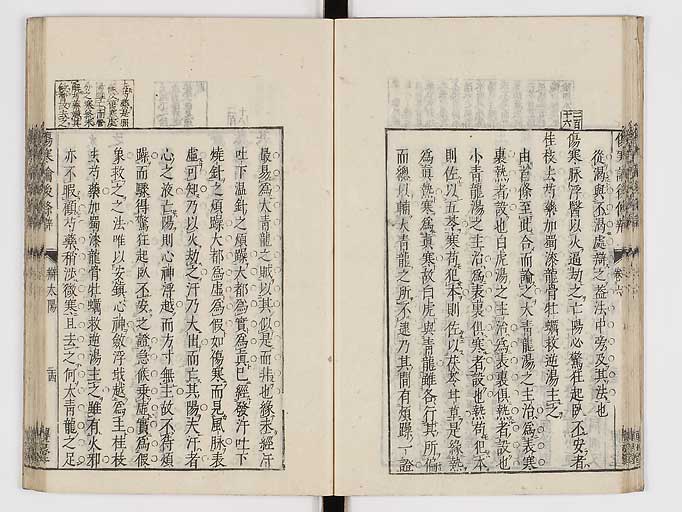 從渴與不渴處辯之蓋法中旁及其法也
三百十六
傷寒脉浮醫以火逼劫之亡陽必驚狂起臥不安者
桂枝去芍藥加蜀漆龍骨牡蠣救逆湯主之
由首條至此合而論之大青龍湯之主治爲表寒
裏熱者設也白虎湯之主治爲表裏俱熱者設也
小青龍湯之主治爲表裏俱寒者設也熱苟犯本
則佐以五苓寒苟犯本則佐以茯苓甘草是緣熱
爲眞熱寒爲眞寒故白虎與青龍雖各行其所偏
而總以輔大青龍之所不逮乃其間有煩躁一證
最易爲大青龍之賊以其似是而非也緣未經汗
吐下温針之煩躁大都爲實爲眞已經發汗吐下
燒針之煩躁大都爲虛爲假如傷寒而見風脉表
虛可知乃以火劫之汗乃大出而亡其陽夫汗者
心之液亡陽則心神浮越而方寸無主故不特煩
躁而驟得驚狂起臥不安之證急候乘虛實爲假
象救之之法唯以安鎮心神斂浮戢越爲主桂枝
去芍藥加蜀漆龍骨牡蠣救逆湯主之雖有火邪
亦不暇顧芍藥稍涉微寒且去之何大青龍之足
辯太陽
卷六